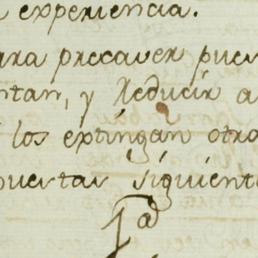 experiencia.
ara precaver pues
ntan, y reducir a
los extingan otra
puertas siguient
1ª